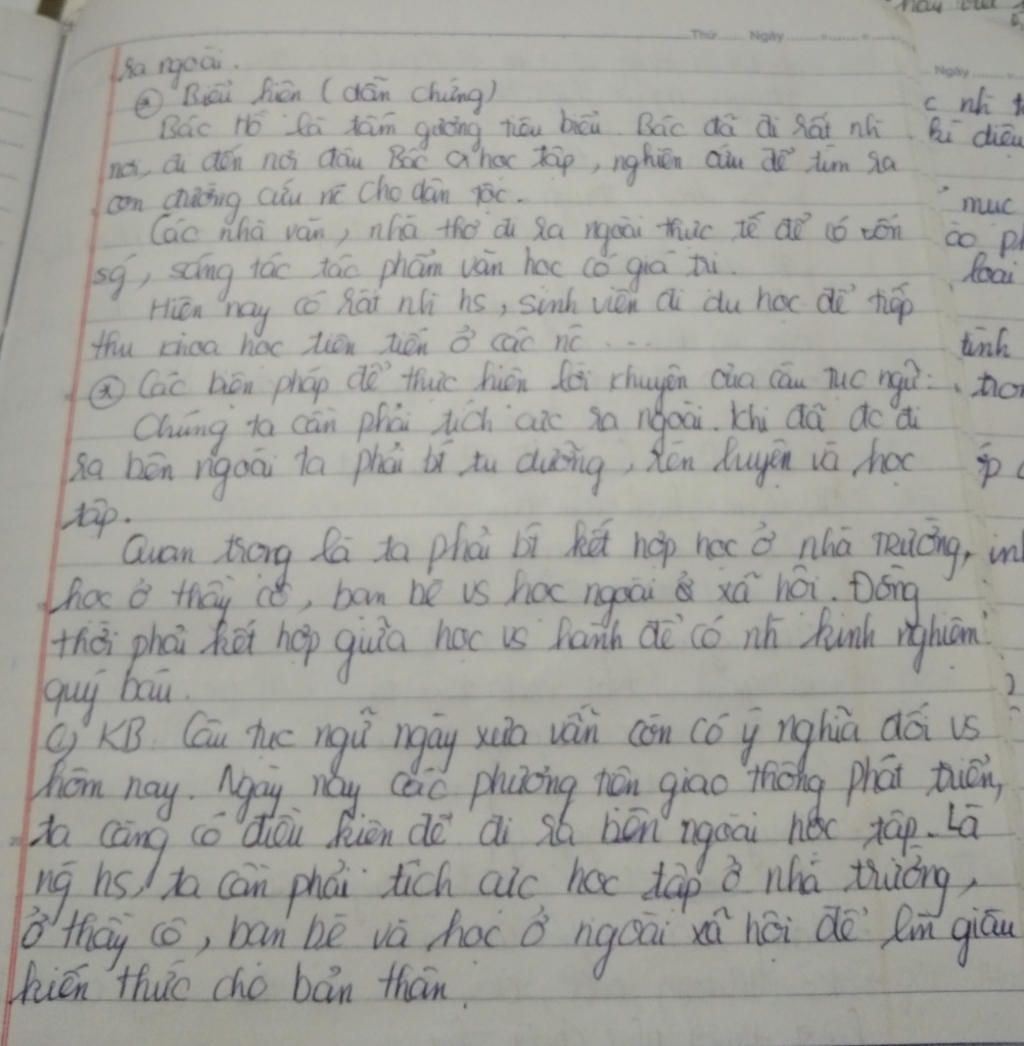 Thứ ..... Ngày .....
ra ngoài.
* Biểu hiện (dẫn chứng)
Bác Hồ là tấm gương tiêu biểu. Bác đã đi rất nh
nơi, đi đến nơi đâu Bác học tập, nghiên cứu để tìm ra
con đường cứu nc cho dân tộc.
Các nhà văn, nhà thơ đi ra ngoài thực tế để có vốn
sg, sáng tác tác phẩm văn học có giá trị.
Hiện nay có rất nh hs, sinh viên đi du học để tiếp
thu khoa học tiên tiến ở các nc ....
* Các biện pháp để thực hiện lời khuyên của câu tục ngữ:
Chúng ta cần phải tích cực ra ngoài. Khi đã đc đi
ra bên ngoài ta phải bt tu dưỡng, rèn luyện và học
tập.
Quan trọng là ta phải bt kết hợp học ở nhà trường,
học ở thầy cô, bạn bè vs học ngoài xã hội. Đồng
thời phải kết hợp giữa học vs hành để có nh kinh nghiệm
quý báu.
c) KB. Câu tục ngữ ngày xưa vẫn còn có ý nghĩa đối vs
hôm nay. Ngày nay các phương tiện giao thông phát triển,
ta càng có điều kiện để đi ra bên ngoài học tập. Là
ng hs, ta cần phải tích cực học tập ở nhà trường,
ở thầy cô, bạn bè và học ở ngoài xã hội để làm giàu
kiến thức cho bản thân.
Ngày
mục
loại
tính